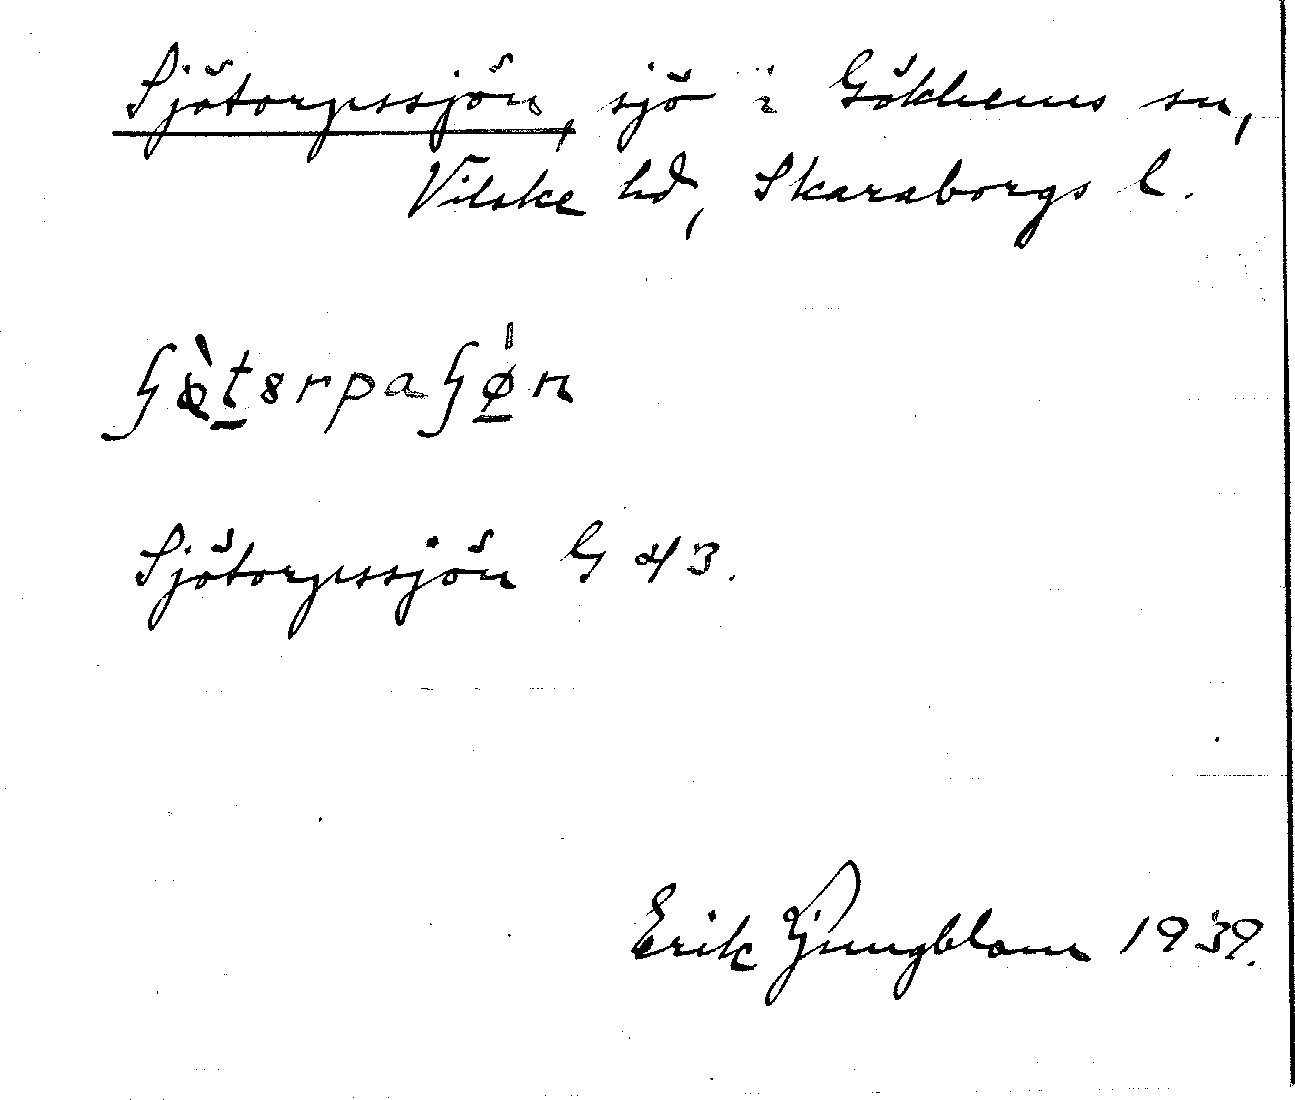 Sjötorpssjön, sjö i Gökhems sn,
Vilske hd, Skaraborgs l.
Sjötorpssjön G 43.
Erik Ljungblom 1939.